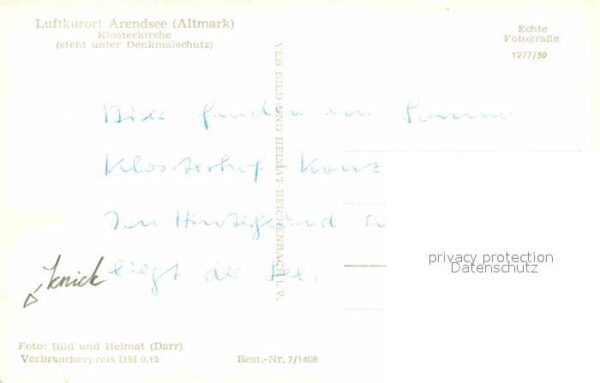 Luftkurort Arendsee (Altmark)
Klosterkirche
(steht unter Denkmalschutz)
Echte
Fotografie
1277/39
VEB BILD UND HEIMAT REICHENBACH I. V.
fanden im
Klosterhof-Konz
Im Hintergrund
liegt der See.
Knick
privacy protection
Datenschutz
Foto: Bild und Heimat (Darr)
Verbraucherpreis DM 0.15
Best.-Nr. 7/1408